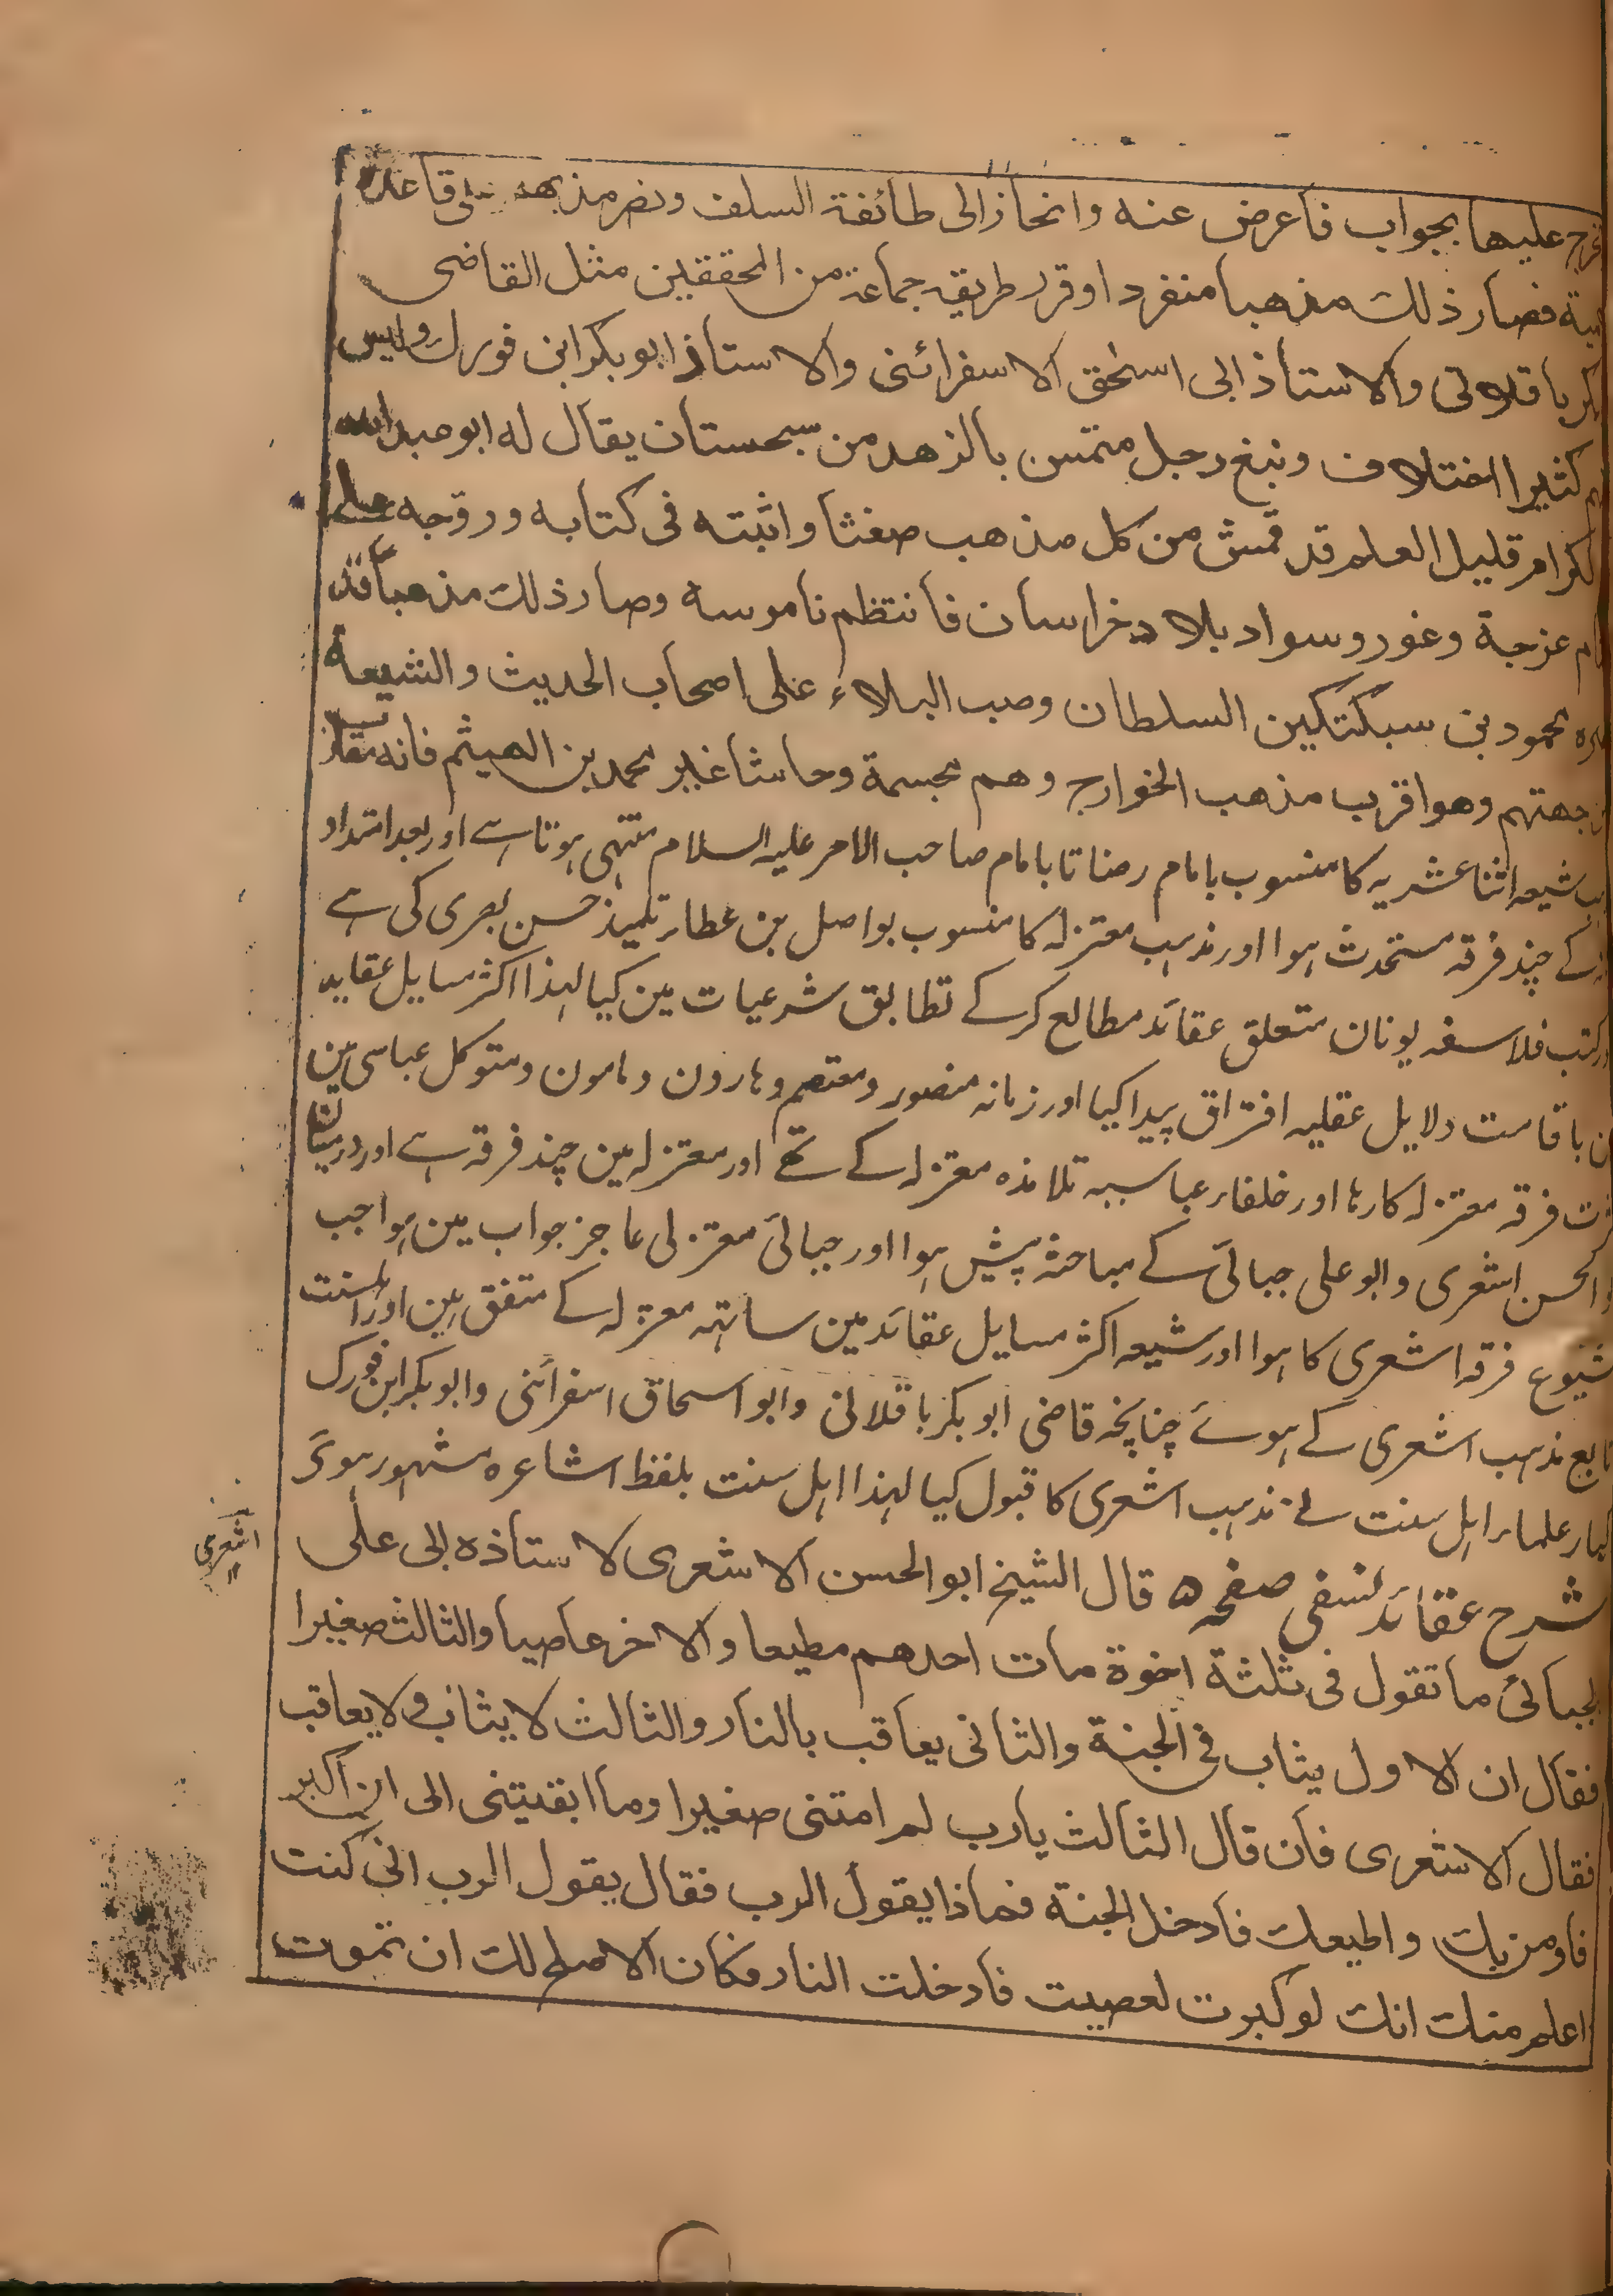 عليها بجواب فاعرض عنه وانحاز الى طائفة السلف ونصر مذهبهم على قاعدة
فصار ذلك مذهبا منفردا وقرر طريقه جماعة من المحققين مثل القاضى
باقلانى والاستاذ ابى اسحق الاسفرائنى والاستاذ ابو بكر ابن فورك وليس
كثيرا اختلاف ونبغ رجل متمس بالزهد من سجستان يقال له ابو عبد الله
الكرام قليل العلم قد قمش من كل مذهب ضغثا واثبته فى كتابه وروّجه على
عزجة وغور وسواد بلاد خراسان فانتظم ناموسه وصار ذلك مذهبا قد
محمود بن سبكتكين السلطان وصب البلاء على اصحاب الحديث والشيعة
جهتهم وهو اقرب مذهب الخوارج وهم مجسمة وحاشا غير محمد بن الهيثم فانه
شیعہ اثنا عشریہ کا منسوب بامام رضا تا بامام صاحب الامر علیہ السلام منتہی ہوتا ہے اور بعد امتداد
کے چند فرقہ مستحدث ہوا اور مذہب معتزلہ کا منسوب بواصل بن عطار تلمیذ حسن بصری کی ہے
کتب فلاسفہ یونان متعلق عقائد مطالع کرکے تطابق شرعیات مین کیا لہذا اکثر مسایل عقاید
باقامت دلایل عقلیہ افتراق پیدا کیا اور زمانہ منصور و معتصم و ہارون و مامون و متوکل عباسی مین
فرقہ معتزلہ کا رہا اور خلفاء عباسیہ تلامذہ معتزلہ کے تھے اور معتزلہ مین چند فرقہ ہے اور درمیان
الحسن اشعری و ابو علی جبائی کے مباحثہ پیش ہوا اور جبائی معتزلی عاجز جواب مین ہوا جب
شیوع فرقہ اشعری کا ہوا اور شیعہ اکثر مسایل عقائد مین ساتہہ معتزلہ کے متفق ہین اور اہلسنت
تابع مذہب اشعری کے ہوئے چنانچہ قاضی ابو بکر باقلانی و ابو اسحاق اسفرائنی و ابو بکر ابن فورک
کبار علماء اہل سنت نے مذہب اشعری کا قبول کیا لہذا اہل سنت بلفظ اشاعرہ مشہور ہوئے
شرح عقائد نسفی صفحہ ۵ قال الشيخ ابو الحسن الاشعرى لاستاذه ابى على
اشعری
لجبائى ما تقول فى ثلثة اخوة مات احدهم مطيعا والاخر عاصيا والثالث صغيرا
فقال ان الاول يثاب فى الجنة والثانى يعاقب بالنار والثالث لا يثاب ولا يعاقب
فقال الاشعرى فان قال الثالث يارب لم امتنى صغيرا وما ابقيتنى الى ان اكبر
فاومن بك واطيعك فادخل الجنة فماذا يقول الرب فقال يقول الرب انى كنت
اعلم منك انك لو كبرت لعصيت فادخلت النار فكان الاصلح لك ان تموت